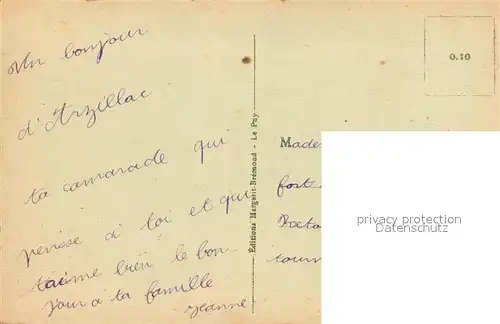 Un bonjour
d'Arzillac
ta camarade qui
pense a toi et qui
taime bien le bon-
jour a ta famille
jeanne
Éditions Margerit-Brémond - Le Puy
0.10
Made
fort
tourn
privacy protection
Datenschutz